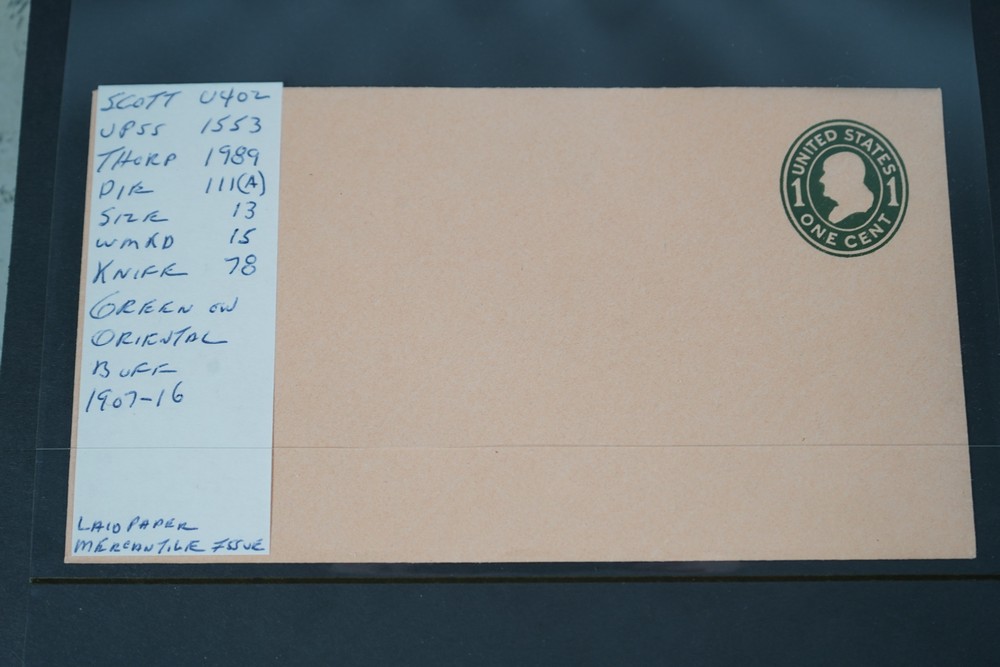 SCOTT U402
UPSS 1553
THORP 1989
DIE 111(A)
SIZE 13
WMKD 15
KNIFE 78
GREEN ON
ORIENTAL
BUFF
1907-16
LAID PAPER
MERCANTILE ISSUE
UNITED STATES
1 1
ONE CENT